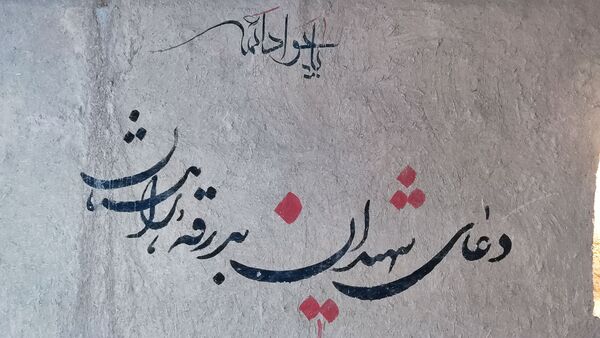 یا جواد ائمه
دعای شهیدان بدرقهٔ راهتان